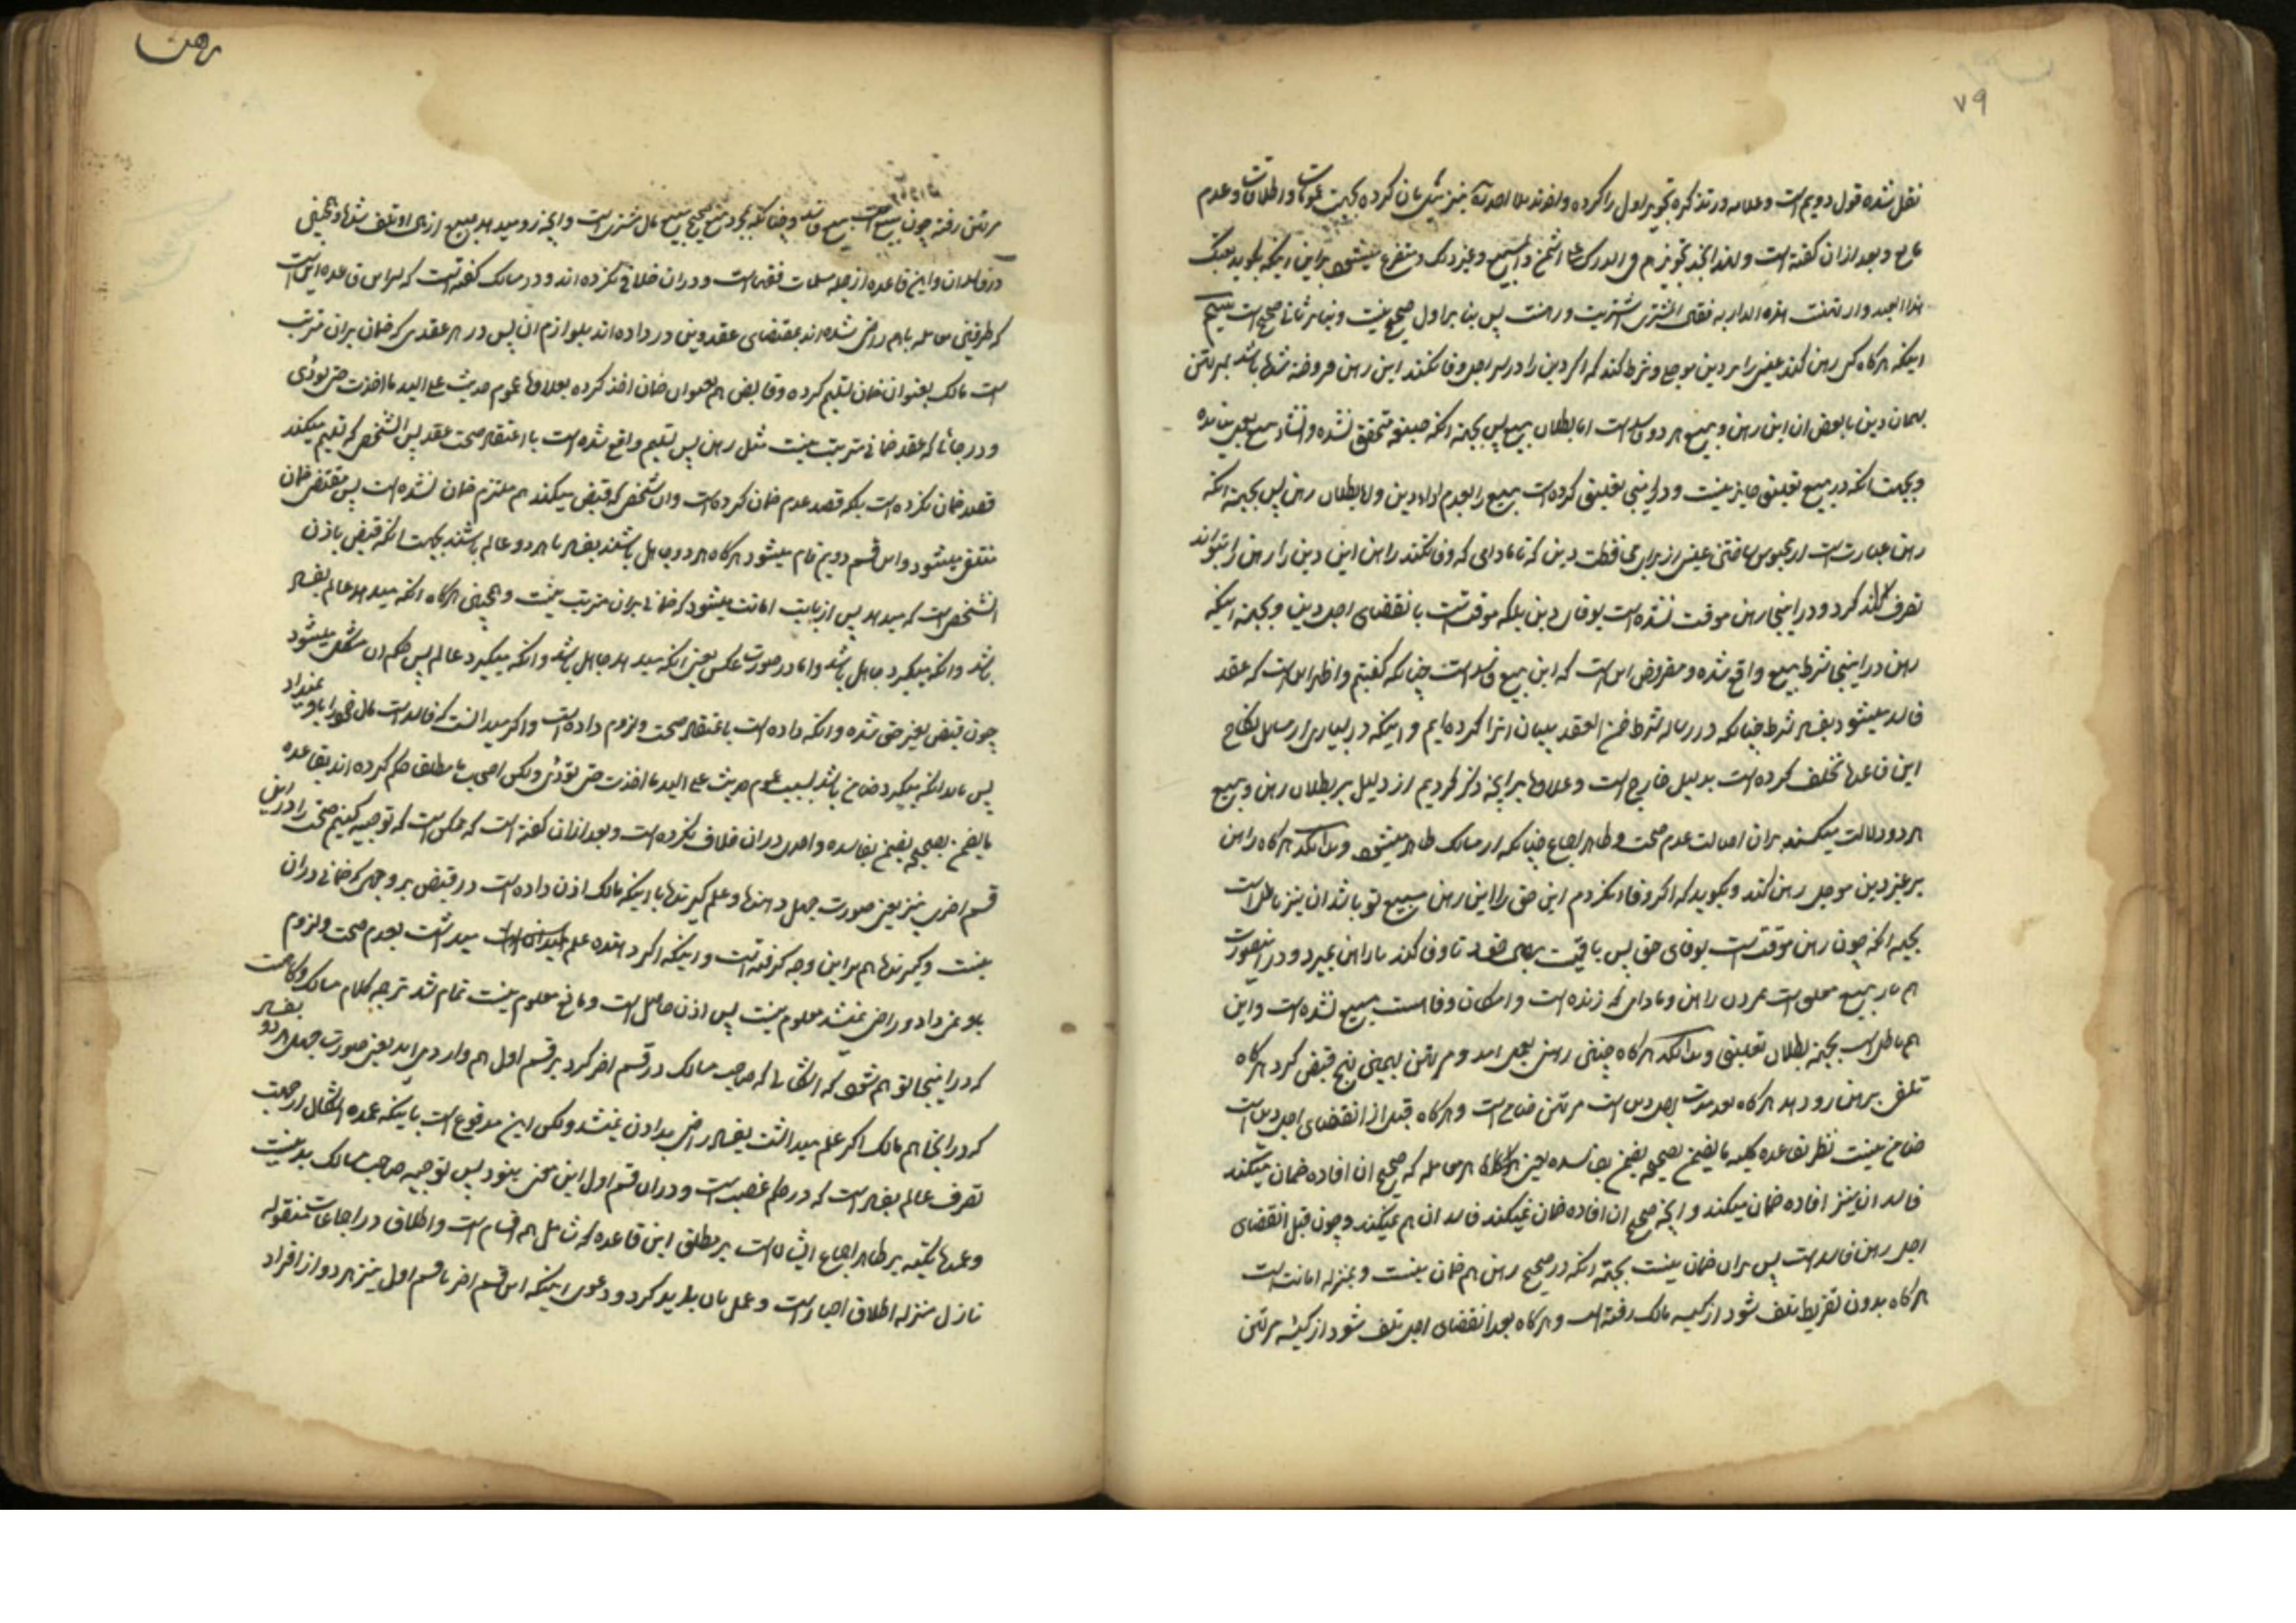 ۷۹
نقل شده قول دویم است و علامه در تذکره تجویز اول را کرده و بجهت عمومات و اطلاقات و عدم
مانع و بعد از آن گفته است و غیر ذلک و متفرع میشود براین اینکه بگوید بعتک
هذا العبد و ارتهنت هذه الدار به فقال المشتری اشتریت و رهنت پس بنا بر اول صحیح نیست و بنا بر ثانی صحیح است بیستم
اینکه هرگاه کسی رهن کند عینی را بر دین موجل و شرط کند که اگر دین را در سر اجل وفا نکند این رهن فروخته شده باشد بمرتهن
بهمان دین یا بعوض آن این رهن و بیع هر دو فاسد است اما بطلان بیع پس بجهة آنکه صیغه متحقق نشده و انشاء بیع بعمل نیامده
و بجهت آنکه در بیع تعلیق جایز نیست و در اینجا تعلیق کرده است بیع را بعدم اداء دین و اما بطلان رهن پس بجهة آنکه
رهن عبارت است از محبوس ساختن عینی از برای محافظت دین که تا مادامی که وفا نکند راهن این دین را رهن را نتواند
تصرف کرد و در اینجا رهن موقت نشده است بوفاء دین بلکه موقت است بانقضای اجل دین و بجهة اینکه
رهن در اینجا شرط بیع واقع شده و مفروض این است که این بیع فاسد است چنانکه گفتیم و اظهر این است که عقد
فاسد میشود بفساد شرط چنانکه در رساله شرط ضمن العقد بیان آنرا کرده‌ایم و اینکه در بسیاری از مسائل نکاح
این قاعده تخلف کرده است بدلیل خارج است و علاوه بر آنچه ذکر کردیم از دلیل بر بطلان رهن و بیع
هر دو دلالت میکند بر آن اصالت عدم صحت و ظاهر اجماع چنانکه از مسالک ظاهر میشود و بدانکه هرگاه راهن
بر غیر دین موجل رهن کند و بگوید که اگر وفا نکردم این حق را این رهن مبیع تو باشد آن نیز باطل است
بجهة آنکه چون رهن موقت است بوفای حق پس باقیست برهن خود تا وفا کند یا راهن بمیرد و در اینصورت
هم باز بیع معلق است بمردن راهن و مادامی که زنده است و امکان وفا هست مبیع نشده است و این
هم باطل است بجهة بطلان تعلیق و بدانکه هرگاه چنین رهنی بعمل آمد و مرتهن بهمین نهج قبض کرد هرگاه
تلف بر رهن رو دهد هرگاه بعد مدت اجل دین است مرتهن ضامن است و هرگاه قبل از انقضای اجل دین است
ضامن نیست نظر بقاعده کلیه ما یضمن بصحیحه یضمن بفاسده یعنی هر معامله که صحیح آن افاده ضمان میکند
فاسد آن نیز افاده ضمان میکند و آنچه صحیح آن افاده ضمان نمیکند فاسد آن هم نمیکند و چون قبل انقضای
اجل رهن فاسد است پس بر آن ضمان نیست بجهة آنکه در صحیح رهن هم ضمان نیست و بمنزله امانت است
هرگاه بدون تفریط تلف شود از کیسه مالک رفته است و هرگاه بعد انقضای اجل تلف شود از کیسه مرتهن
رهن
مرتهن رفته چون بیع است بیع فاسد و چنانکه بمجرد بیع صحیح مبیع مال مشتری است و آنچه رو میدهد بمبیع از مال او تلف شده و همچنین
در فاسد آن و این قاعده از جمله مسلمات فقهاست و در آن خلافی نکرده اند و در مسالک گفته است که سر این قاعده این است
که طرفین معامله باهم راضی شده‌اند بمقتضای عقد و تن در داده اند بلوازم آن پس در هر عقدی که ضمان بر آن مترتب
است مالک بعنوان ضمان تسلیم کرده و قابض هم بعنوان ضمان اخذ کرده بعلاوه عموم حدیث علی الید ما اخذت حتی تؤدی
و در جائی که عقد ضمانی مترتب نیست مثل رهن پس تسلیم واقع شده است با اعتقاد صحت عقد پس آن شخص که تسلیم میکند
قصد ضمان نکرده است بلکه قصد عدم ضمان کرده است و آن شخص که قبض میکند هم ملتزم ضمان نشده است پس مقتضی ضمان
منتفی میشود و این قسم دویم تمام میشود هرگاه هر دو جاهل باشند بفساد یا هر دو عالم باشند بجهت آنکه قبض باذن
آن شخص است که میدهد پس از بابت امانت میشود که ضمانی بر آن مترتب نیست و همچنین هرگاه آنکه میدهد عالم بفساد
باشد و آنکه میگیرد جاهل باشد و اما در صورت عکس یعنی آنکه میدهد جاهل باشد و آنکه میگیرد عالم پس حکم آن مشکل میشود
چون قبض بغیر حق شده و آنکه داده است باعتقاد صحت و لزوم داده است و اگر میدانست که فاسد است مال خود را باو نمیداد
پس باید آنکه میگیرد ضامن باشد بسبب عموم حدیث علی الید ما اخذت حتی تؤدی ولکن اصحاب ما مطلق حکم کرده اند بقاعده
ما یضمن بصحیحه یضمن بفاسده و احدی در آن خلاف نکرده است و بعد از آن گفته است که ممکن است که توجیه کنیم صحت را در این
قسم اخری نیز یعنی صورت جهل دهنده و علم گیرنده باینکه مالک اذن داده است در قبض بر وجهی که ضمانی در آن
نیست و گیرنده هم بر این وجه گرفته است و اینکه اگر دهنده علم میداشت بعدم صحت و لزوم
باو نمیداد و راضی نمیشد معلوم نیست پس اذن حاصل است و مانع معلوم نیست تمام شد ترجمه کلام مسالک
که در اینجا توهم نشود که اشکالی که صاحب مسالک در قسم آخر کرد بر قسم اول هم وارد می‌آید یعنی صورت جهل هر دو بفساد
که در اینجا هم مالک اگر علم میداشت بفساد راضی بدادن نمیشد ولکن این مدفوع است باینکه عمده اشکال از جهت
تصرف عالم بفساد است که در حکم غصب است و در آن قسم اول این سخن نبود پس توجیه صاحب مسالک بد نیست
و عمده تکیه بر ظاهر اجماع ایشان است بر مطلق این قاعده که شامل همه اقسام است و اطلاق در اجماعات منقوله
نازل منزله اطلاق اخبار است و عمل بآن باید کرد و دعوی اینکه این قسم آخر یا قسم اول نیز هر دو از افراد